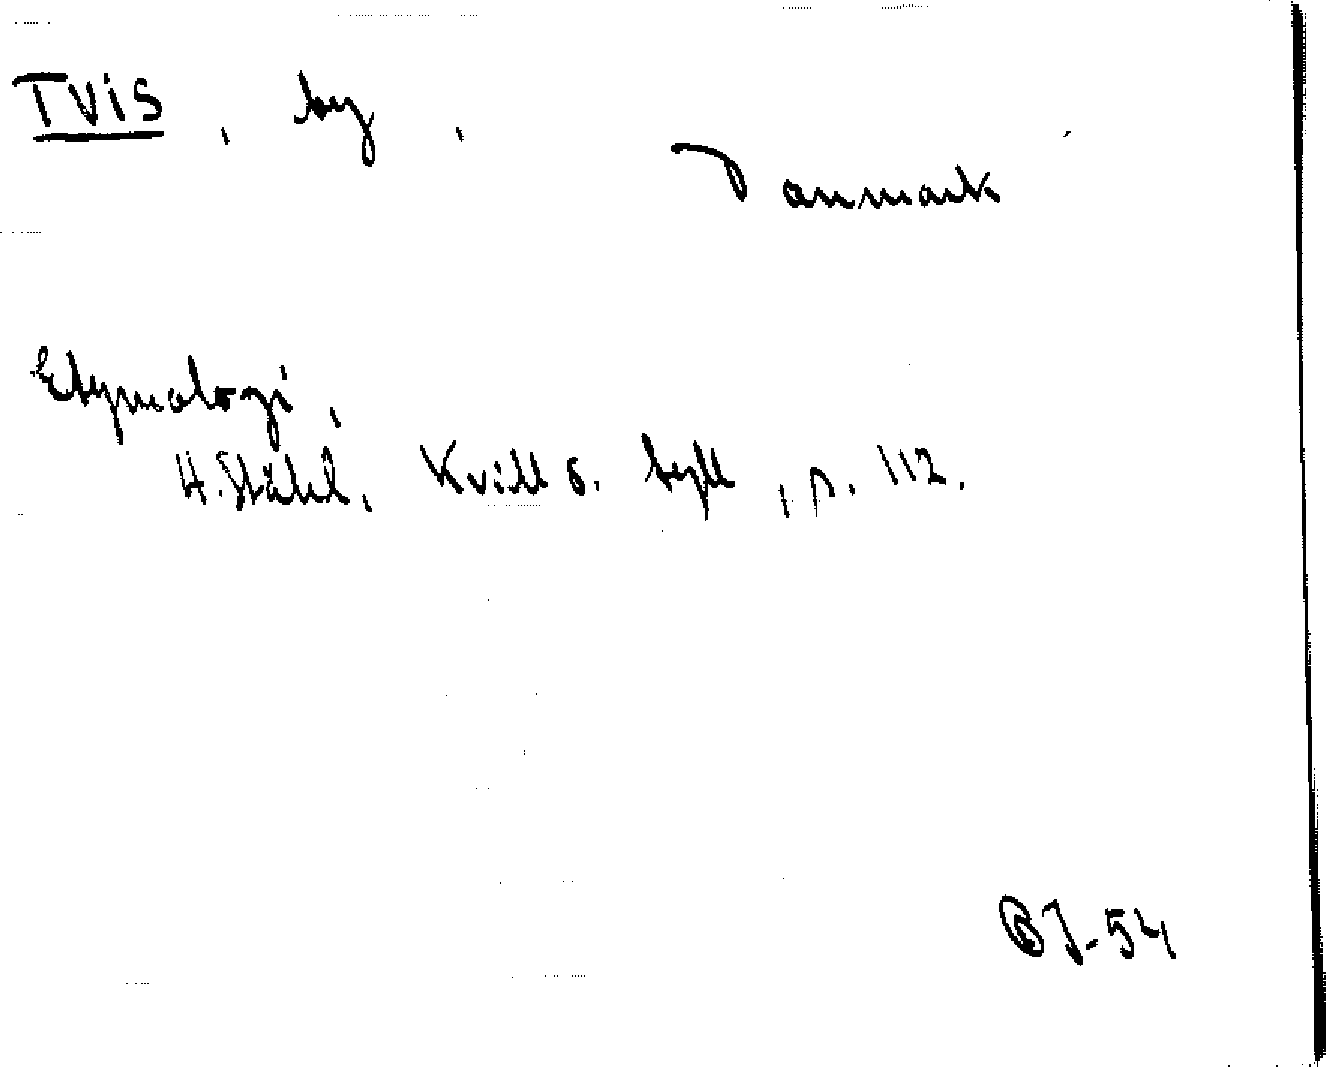 TVIS, by,
Danmark
Etymologi,
H. Ståhl, Kvill o. tyll, p. 112.
BJ-54